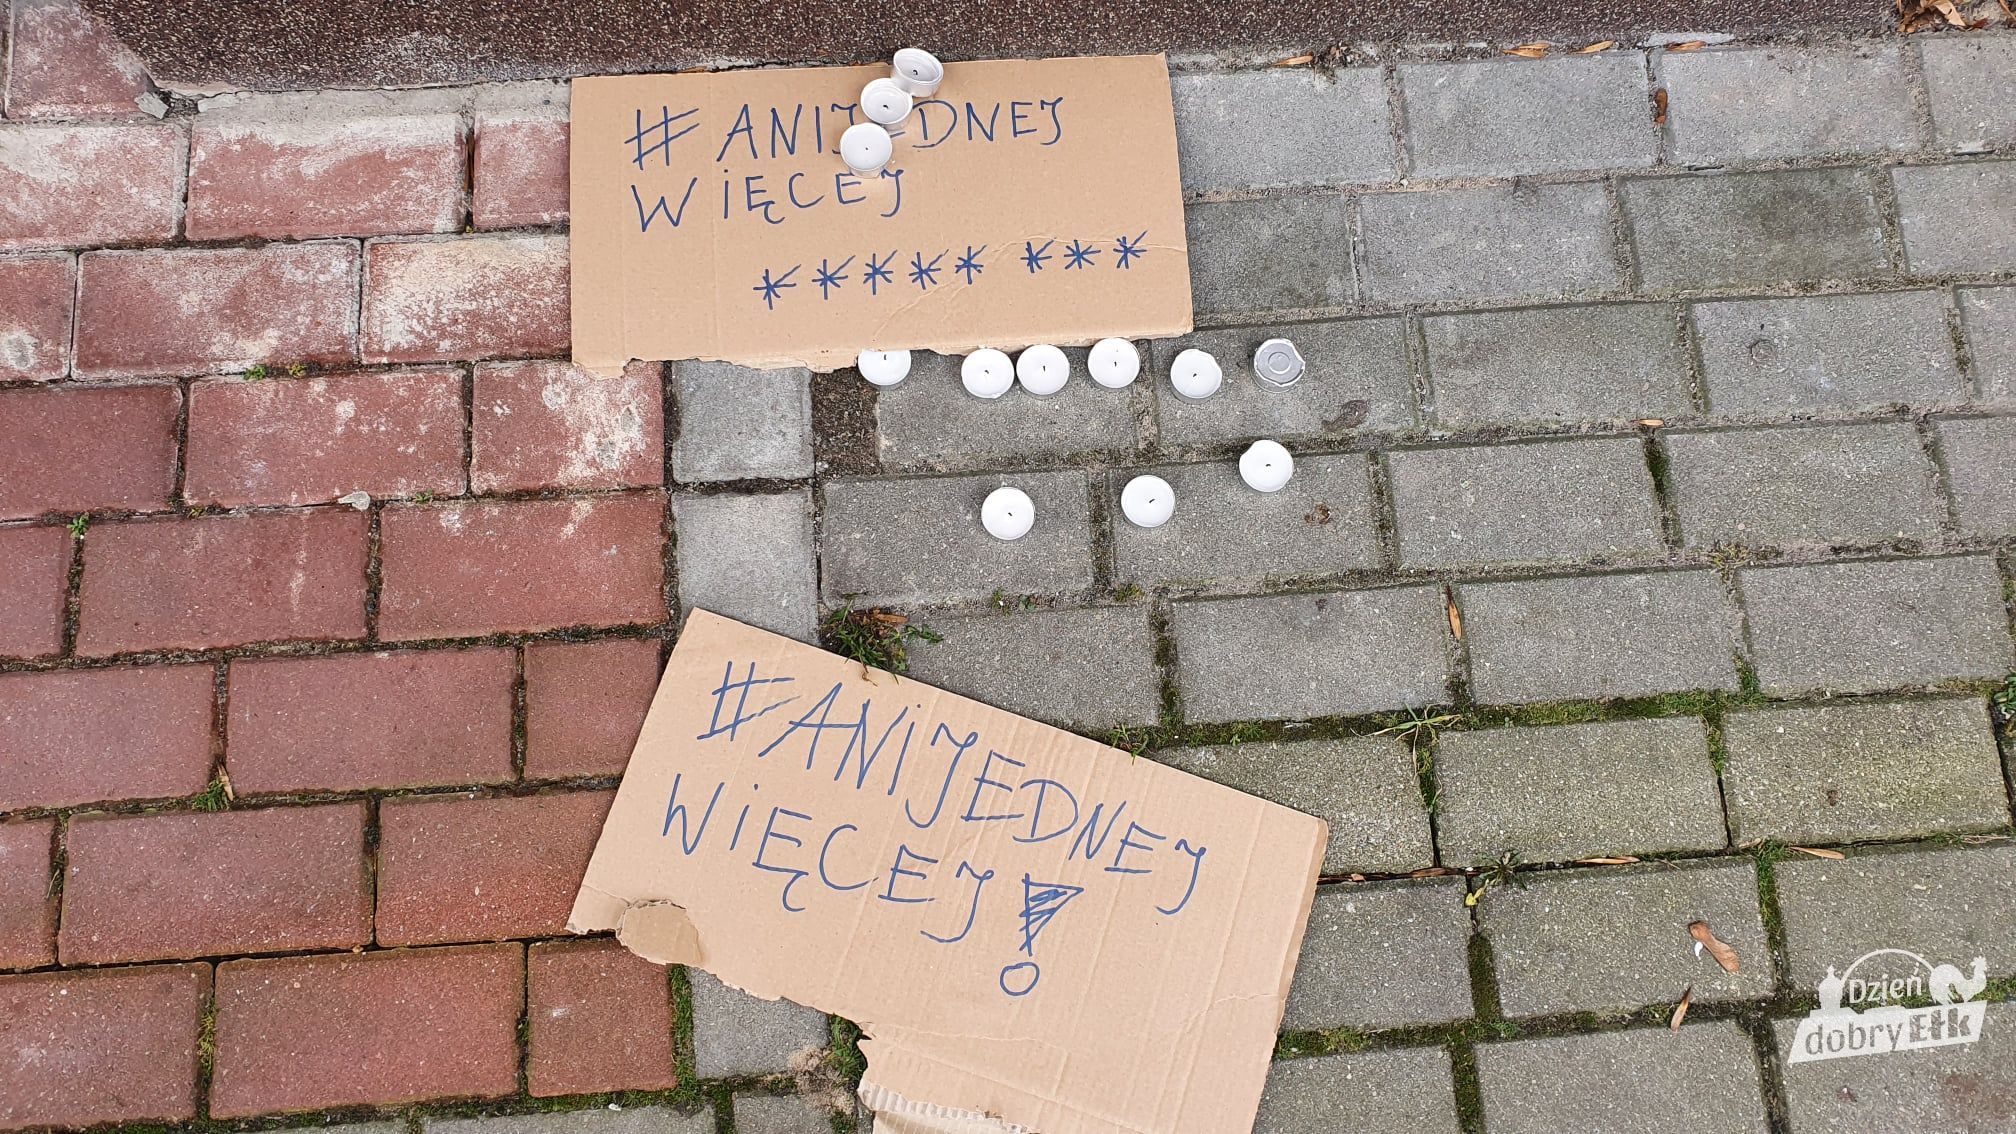 #ANIJEDNEJ
WIĘCEJ
***** ***
#ANIJEDNEJ
WIĘCEJ!
Dzień
dobry Ełk